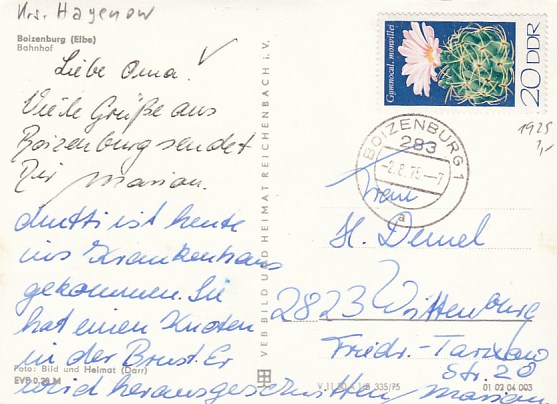 Krs. Hagenow
Boizenburg (Elbe)
Bahnhof
Liebe Oma!
Viele Grüße aus
Boizenburg sendet
Dir Marion.
Mutti ist heute
ins Krankenhaus
gekommen. Sie
hat einen Knoten
in der Brust. Er
wird herausgeschnitten Marion
Foto: Bild und Heimat (Darr)
EVP 0,20 M
VEB BILD UND HEIMAT REICHENBACH i. V.
V 11 50 A 1/B 335/75
01 02 04 003
Gymnocal. monvillei
20 DDR
BOIZENBURG 1
283
-2.8.76-7
a
1925
Frau
H. Demel
2823 Wittenburg
Friedr.-Tarnow
Str. 20